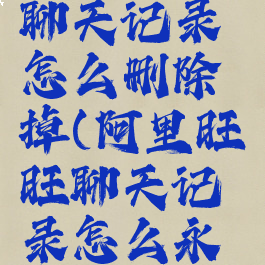 聊天记录
怎么删除
掉(阿里旺
旺聊天记
录怎么永